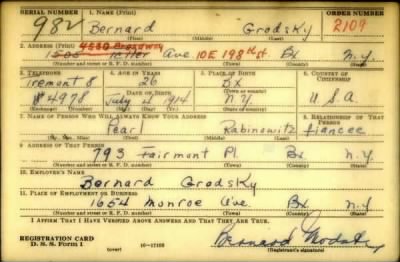 SERIAL NUMBER 1. NAME (Print) ORDER NUMBER
982 Bernard Grodsky 2109
(First) (Middle) (Last)
2. ADDRESS (Print) 4580 Broadway
1505 Ave 10E 198th St. Bx N.Y.
(Number and street or R. F. D. number) (Town) (County) (State)
3. TELEPHONE 4. AGE IN YEARS 5. PLACE OF BIRTH 6. COUNTRY OF CITIZENSHIP
Tremont 8 26 Bx
DATE OF BIRTH (Town or county)
84978 July 4 1914 N.Y. U S A
(Exchange) (Number) (Mo.) (Day) (Yr.) (State or country)
7. NAME OF PERSON WHO WILL ALWAYS KNOW YOUR ADDRESS 8. RELATIONSHIP OF THAT PERSON
Pearl Rabinowitz fiancee
(Mr., Mrs., Miss) (First) (Middle) (Last)
9. ADDRESS OF THAT PERSON
793 Fairmont Pl. Bx. N.Y.
(Number and street or R. F. D. number) (Town) (County) (State)
10. EMPLOYER'S NAME
Bernard Grodsky
11. PLACE OF EMPLOYMENT OR BUSINESS
1654 Monroe Ave. Bx. N.Y.
(Number and street or R. F. D. number) (Town) (County) (State)
I AFFIRM THAT I HAVE VERIFIED ABOVE ANSWERS AND THAT THEY ARE TRUE.
REGISTRATION CARD
D. S. S. Form 1 (over) 16—17105 Bernard Grodsky
(Registrant's signature)